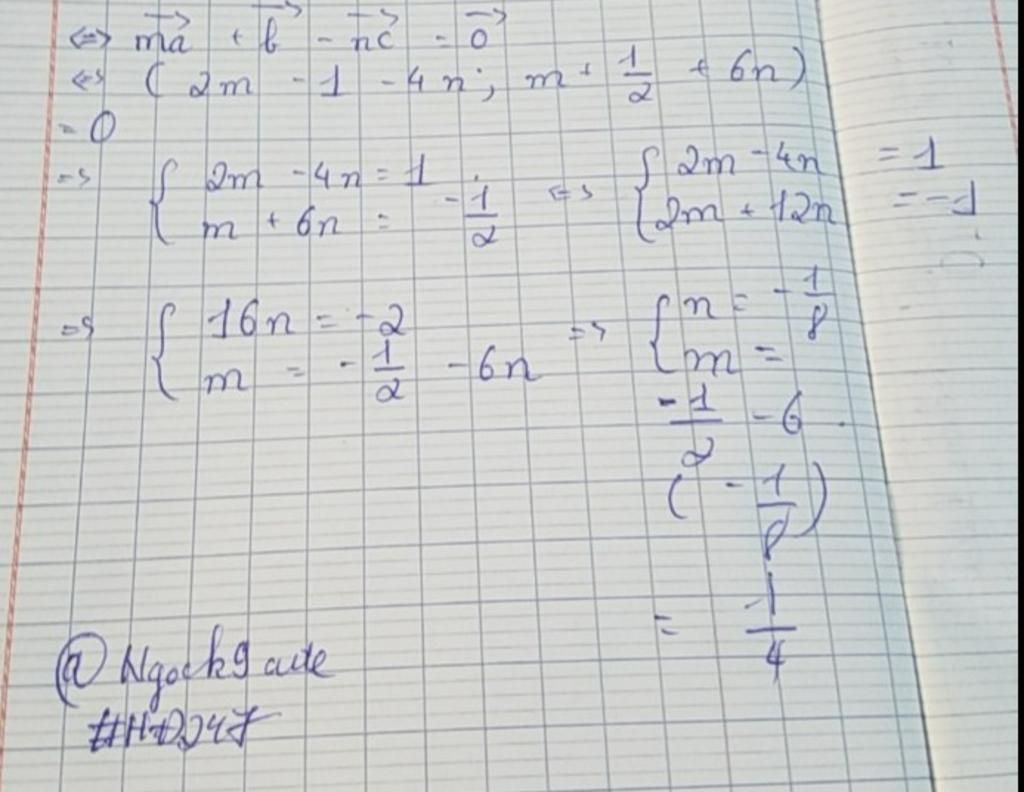 ⇔ ma⃗ + b⃗ - nc⃗ = 0⃗
⇔ (2m - 1 - 4n; m + 1/2 + 6n)
= 0
⇒ { 2m - 4n = 1 ; m + 6n = -1/2 ⇔ { 2m - 4n = 1 ; 2m + 12n = -1
⇒ { 16n = -2 ; m = -1/2 - 6n ⇒ { n = -1/8 ; m =
-1/2 - 6.
(-1/8)
= 1/4
@Ngock9cute
#HD247